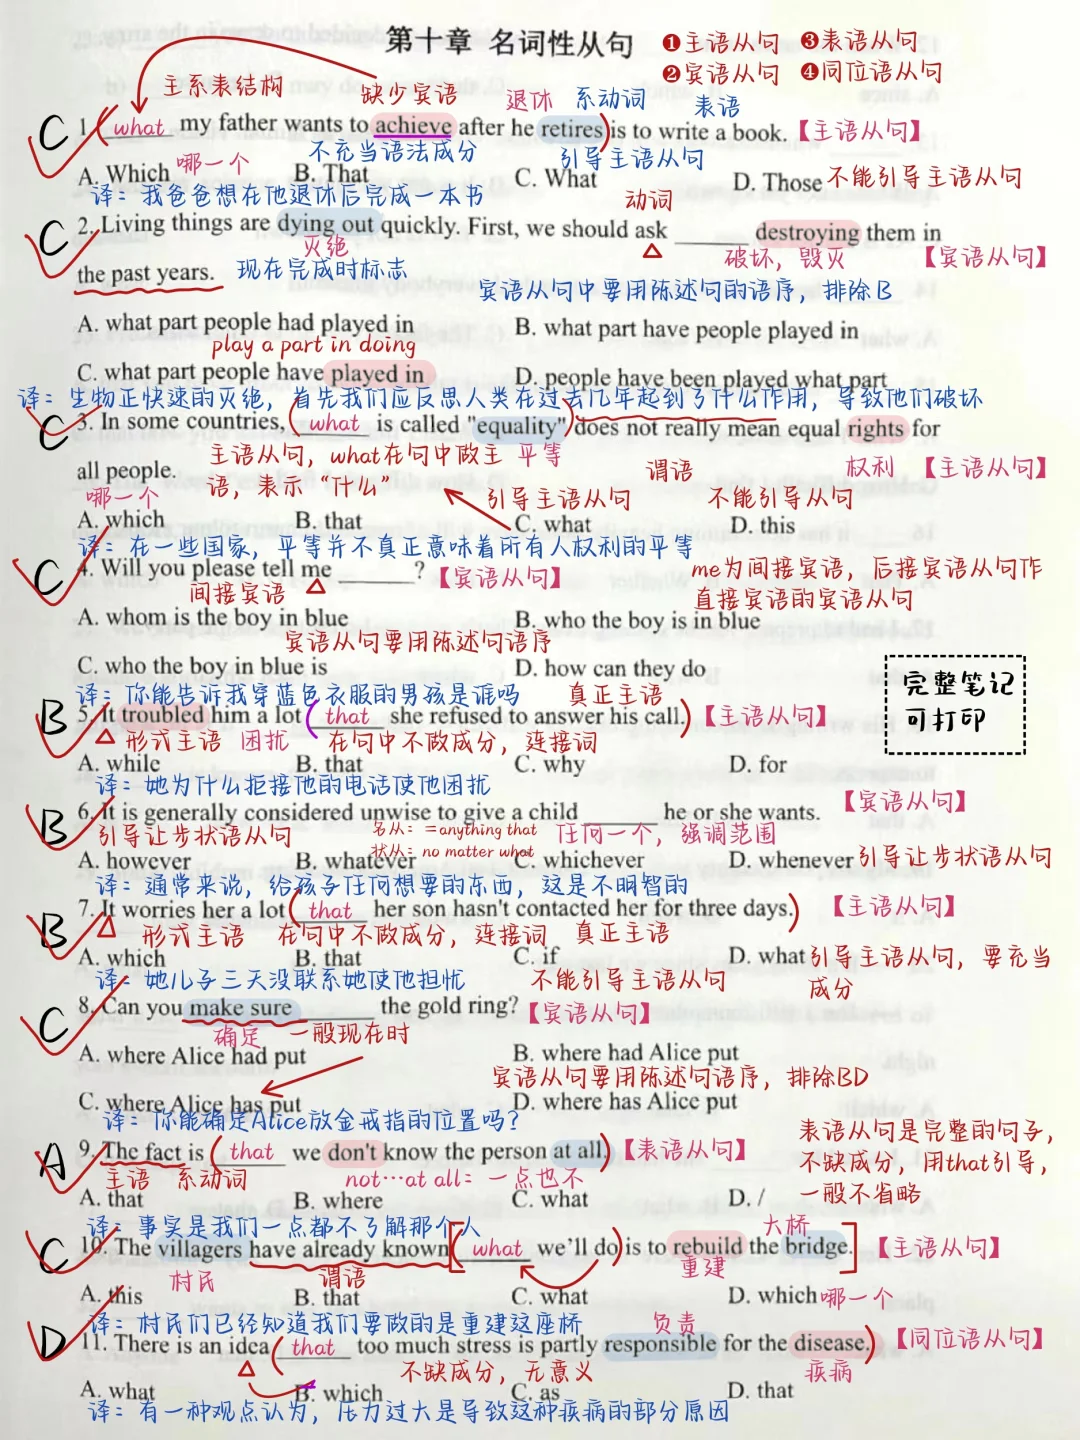 第十章 名词性从句
❶主语从句 ❸表语从句
❷宾语从句 ❹同位语从句
主系表结构 缺少宾语 退休 系动词 表语
C 1. (what my father wants to achieve after he retires) is to write a book.【主语从句】
不充当语法成分 引导主语从句
A. Which 哪一个 B. That C. What D. Those 不能引导主语从句
译：我爸爸想在他退休后完成一本书 动词
C 2. Living things are dying out quickly. First, we should ask ______ destroying them in
灭绝 破坏，毁灭 【宾语从句】
the past years. 现在完成时标志
宾语从句中要用陈述句的语序，排除B
A. what part people had played in B. what part have people played in
play a part in doing
C. what part people have played in D. people have been played what part
译：生物正快速的灭绝，首先我们应反思人类在过去几年起到了什么作用，导致他们破坏
C 3. In some countries, (what is called "equality") does not really mean equal rights for
主语从句，what在句中做主 平等 谓语 权利 【主语从句】
all people. 语，表示“什么”
哪一个 引导主语从句 不能引导从句
A. which B. that C. what D. this
译：在一些国家，平等并不真正意味着所有人权利的平等
C 4. Will you please tell me ______?【宾语从句】 me为间接宾语，后接宾语从句作
间接宾语 直接宾语的宾语从句
A. whom is the boy in blue B. who the boy is in blue
宾语从句要用陈述句语序
C. who the boy in blue is D. how can they do
完整笔记
可打印
译：你能告诉我穿蓝色衣服的男孩是谁吗 真正主语
B 5. It troubled him a lot (that she refused to answer his call.)【主语从句】
形式主语 困扰 在句中不做成分，连接词
A. while B. that C. why D. for
译：她为什么拒接他的电话使他困扰
B 6. It is generally considered unwise to give a child ______ he or she wants. 【宾语从句】
引导让步状语从句 名从：=anything that 任何一个，强调范围
状从：no matter what
A. however B. whatever C. whichever D. whenever 引导让步状语从句
译：通常来说，给孩子任何想要的东西，这是不明智的
B 7. It worries her a lot (that her son hasn't contacted her for three days.) 【主语从句】
形式主语 在句中不做成分，连接词 真正主语
A. which B. that C. if D. what 引导主语从句，要充当
译：她儿子三天没联系她使他担忧 不能引导主语从句 成分
C 8. Can you make sure ______ the gold ring?【宾语从句】
确定 一般现在时
A. where Alice had put B. where had Alice put
宾语从句要用陈述句语序，排除BD
C. where Alice has put D. where has Alice put
译：你能确定Alice放金戒指的位置吗？
表语从句是完整的句子，
不缺成分，用that引导，
一般不省略
A 9. The fact is (that we don't know the person at all.)【表语从句】
主语 系动词 not…at all：一点也不
A. that B. where C. what D. /
译：事实是我们一点都不了解那个人 大桥
C 10. The villagers have already known [(what we'll do) is to rebuild the bridge.] 【主语从句】
村民 谓语 重建
A. this B. that C. what D. which 哪一个
译：村民们已经知道我们要做的是重建这座桥 负责
D 11. There is an idea (that too much stress is partly responsible for the disease.) 【同位语从句】
不缺成分，无意义 疾病
A. what B. which C. as D. that
译：有一种观点认为，压力过大是导致这种疾病的部分原因